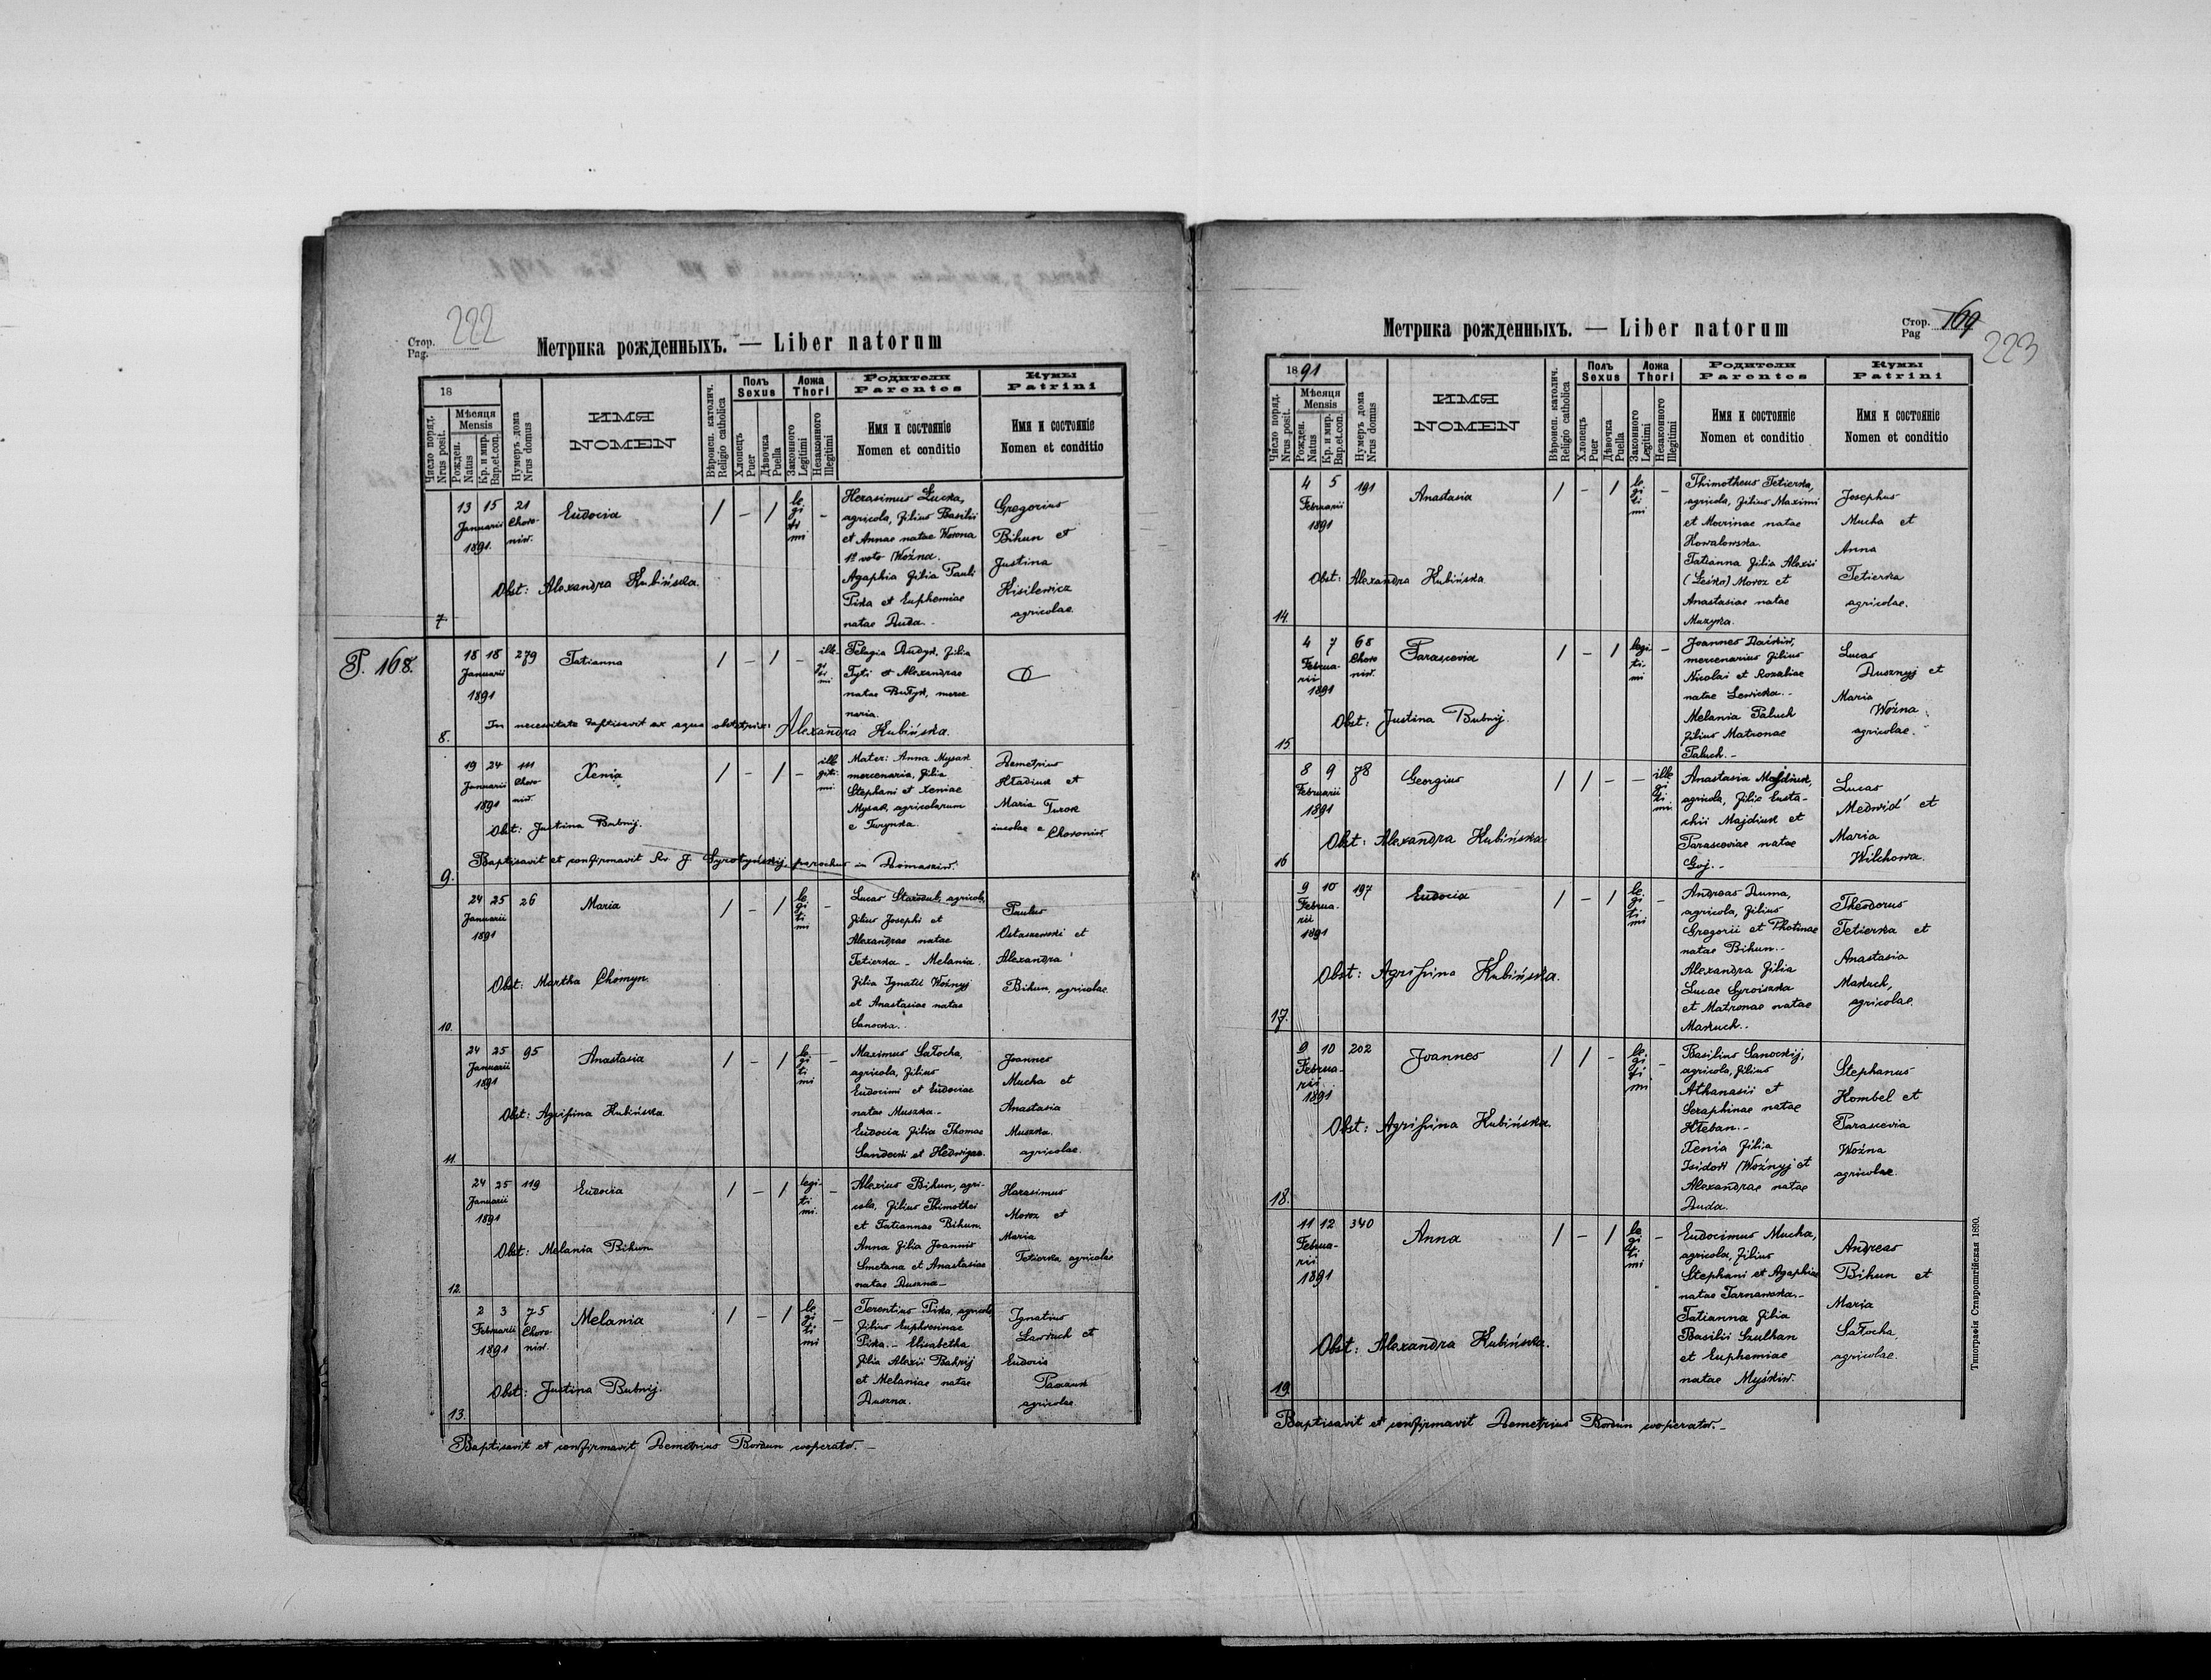 Стор.
Pag.
222
Метрика рожденныхъ. — Liber natorum
18
Число поряд.
Nrus posit.
Мѣсяця
Mensis
Рожден.
Natus
Кр. и мир.
Bap.et.con.
Нумеръ дома
Nrus domus
ИМЯ
NOMEN
Вѣроисп. католич.
Religio catholica
Полъ
Sexus
Хлопецъ
Puer
Дѣвочка
Puella
Ложа
Thori
Законного
Legitimi
Незаконного
Illegitimi
Родители
Parentes
Имя и состоянiе
Nomen et conditio
Кумы
Patrini
Имя и состоянiе
Nomen et conditio
7
13 15
Januarii
1891.
21
Choro-
niw.
Eudocia
/ - /
le
gi
ti
mi
-
Herasimus Lucka,
agricola, filius Basilii
et Annae natae Worona
1º voto Woźna.
Agaphia filia Pauli
Pika et Euphemiae
natae Duda.-
Gregorius
Bihun et
Justina
Kisilewicz
agricolae.
Obst: Alexandra Kubińska.
P. 168.
8.
18 18
Januarii
1891
279
Tatianna
/ - / -
ille-
gi
ti
mi
Pelagia Dudyk, filia
Tyti et Alexandrae
natae Budyk, merce
naria.
In necessitate baptisavit ex aqua obstetrix: Alexandra Kubińska.
9.
19 24
Januarii
1891
111
Choro-
niw.
Xenia
/ - / -
ille
giti-
mi.
Mater: Anna Mysak
mercenaria, filia
Stephani et Xeniae
Mysak, agricolarum
e Turynka.
Demetrius
Hładiuk et
Maria Turok
incolae e Choroniw
Obst: Justina Bubnij.
Baptisavit et confirmavit Rv. J. parochus in Domasziw.
10.
24 25
Januarii
1891
26
Maria
/ - /
le
gi
ti
mi
-
Lucas Starodub, agricola,
filius Josephi et
Alexandrae natae
Tetierka - Melania
filia Ignatii Woźnyj
et Anastasiae natae
Sanocka.-
Paulus
Ostaszewski et
Alexandra
Bihun, agricolae
Obst: Martha Chomyn.
11.
24 25
Januarii
1891
95
Anastasia
/ - /
le-
gi
ti
mi
-
Maximus Sałocha,
agricola, filius
Eudocimi et Eudociae
natae Muszka.-
Eudocia filia Thomae
Sandecki et Hedwigae.
Joannes
Mucha et
Anastasia
Muszka.
agricolae.
Obst: Agrifina Kubińska.
12.
24 25
Januarii
1891
119
Eudocia
/ - /
legi-
ti
mi.
-
Alexius Bihun, agri-
cola, filius Thimothei
et Tatiannae Bihun.
Anna filia Joannis
Smetana et Anastasiae
natae Duszna.-
Harasimus
Moroz et
Maria
Tetierka, agricolae
Obst: Melania Bihun.
13.
2 3
Februarii
1891
75
Choro-
niw.
Melania
/ - /
le
gi
ti
mi
-
Terentius Pika, agricola,
filius Euphrosinae
Pika.- Elisabetha
filia Alexii Bahrij
et Melaniae natae
Duszna.
Ignatius
Lawruch et
Eudocia
agricolae.
Obst: Justina Bubnij.
Baptisavit et confirmavit Demetrius Bordun cooperator.-
Метрика рожденныхъ. — Liber natorum
Стор.
Pag
169
223
1891
Число поряд.
Nrus posit.
Мѣсяця
Mensis
Рожден.
Natus
Кр. и мир.
Bap.et.con.
Нумеръ дома
Nrus domus
ИМЯ
NOMEN
Вѣроисп. католич.
Religio catholica
Полъ
Sexus
Хлопецъ
Puer
Дѣвочка
Puella
Ложа
Thori
Законного
Legitimi
Незаконного
Illegitimi
Родители
Parentes
Имя и состоянiе
Nomen et conditio
Кумы
Patrini
Имя и состоянiе
Nomen et conditio
14.
4 5
Februarii
1891
191
Anastasia
/ - /
le
gi
ti
mi
-
Thimotheus Tetierka,
agricola, filius Maximi
et Mocrinae natae
Kowalewska.
Tatianna filia Alexii
(Leśko) Moroz et
Anastasiae natae
Muzyka.
Josephus
Mucha et
Anna
Tetierka
agricolae.
Obst: Alexandra Kubińska.
15.
4 7
Februa-
rii
1891
68
Choro
niw.
Parascevia
/ - /
legi-
ti-
mi
-
Joannes Daikiw,
mercenarius filius
Nicolai et Rozaliae
natae Lewicka.-
Melania Paluch
filius Matronae
Paluch.-
Lucas
Dusznyj et
Maria
Woźna
agricolae.
Obst: Justina Bubnij.
16
8 9
Februarii
1891
78
Georgius
/ / - -
ille
gi
ti
mi
Anastasia Majdiuk,
agricola, filia Eusta-
chii Majdiuk et
Parasceviae natae
Goj.-
Lucas
Medwid' et
Maria
Wilchowa.
Obst: Alexandra Kubińska.
17.
9 10
Februa-
rii
1891
197
Eudocia
/ - /
le
gi
ti
mi
-
Andreas Duma,
agricola, filius
Gregorii et Photinae
natae Bihun.-
Alexandra filia
Lucae Syroiszka
et Matronae natae
Maruch..
Theodorus
Tetierka et
Anastasia
Maruch,
agricolae.
Obst: Agrifina Kubińska.
18.
9 10
Februa-
rii
1891
202
Joannes
/ / -
le-
gi
ti
mi
-
Basilius Sanockij,
agricola, filius
Athanasii et
Seraphinae natae
Hłeban.-
Xenia filia
Isidori Woźnyj et
Alexandrae natae
Duda.
Stephanus
Kombel et
Parascevia
Woźna
agricolae.
Obst: Agrifina Kubińska.
19.
11 12
Februa-
rii
1891
340
Anna
/ - /
le
gi
ti
mi
-
Eudocimus Mucha,
agricola, filius
Stephani et Agaphiae
natae Tarnawska.-
Tatianna filia
Basilii Szulhan
et Euphemiae
natae Myśkiw.
Andreas
Bihun et
Maria
Sałocha,
agricolae.
Obst: Alexandra Kubińska.
Baptisavit et confirmavit Demetrius Bordun cooperator.-
Типографія Ставропигійская 1890.